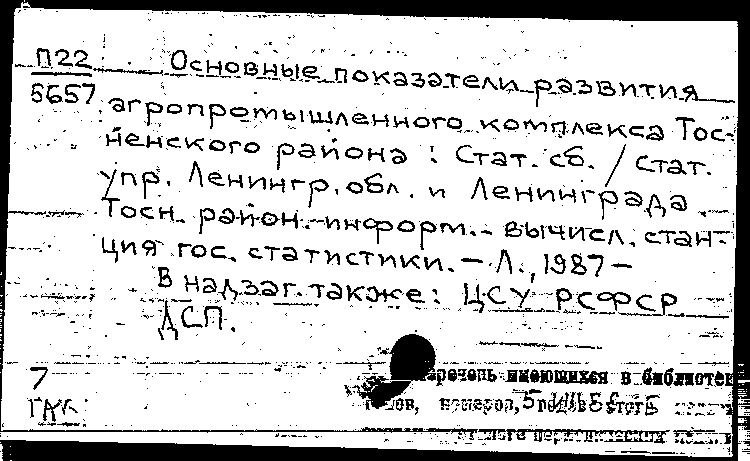 П22 Основные показатели развития
5657 агропромышленного комплекса Тос-
ненского района : Стат. сб. / стат.
упр. Ленингр. обл. и Ленинграда.
Тосн. район. информ.- вычисл. стан-
ция гос. статистики. - Л., 1987 -
В надзаг. также: ЦСУ РСФСР
ДСП.
7 перечень имеющихся в библиотек
ГАК
номеров,